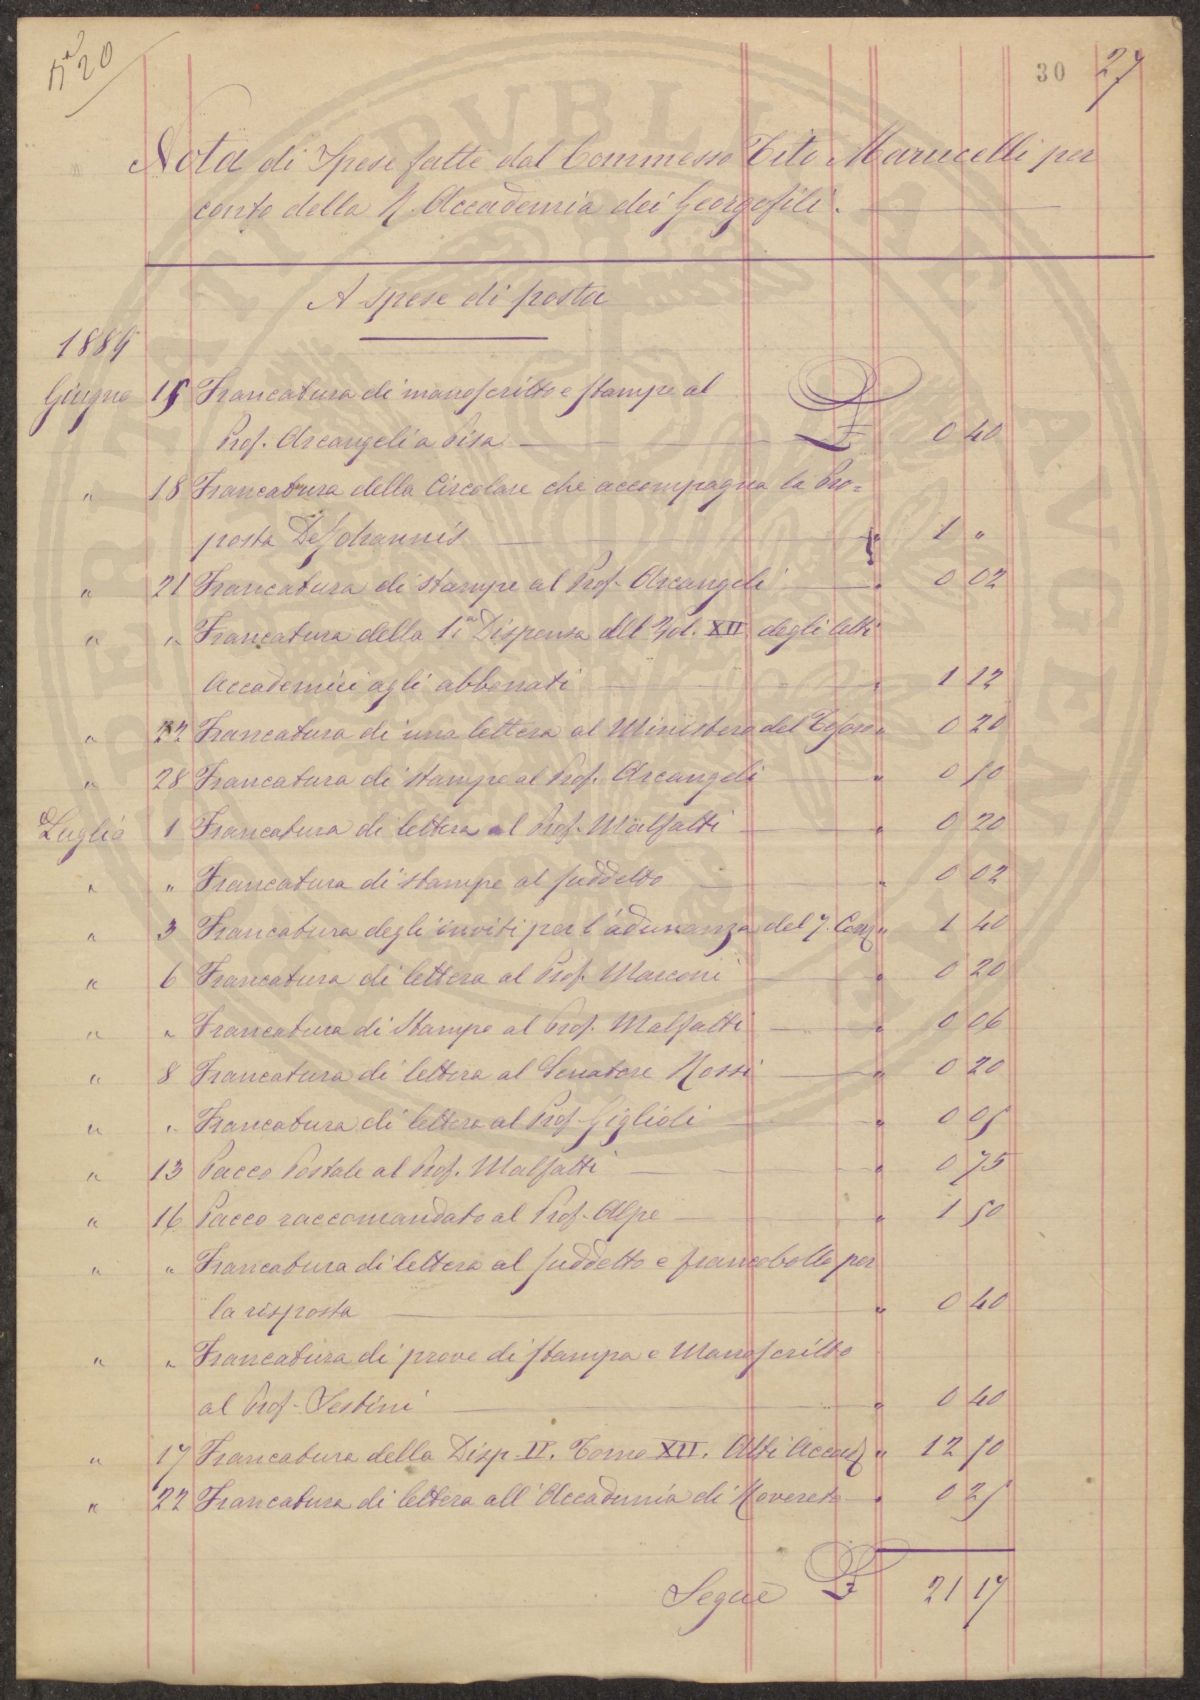 Nº 20
30 27
Nota di Spese fatte dal Commesso Tito Marucelli per
conto della R. Accademia dei Georgofili.
A spese di posta
1889
Giugno 15 Francatura di manoscritto e stampe al
Prof. Arcangeli a Pisa £ 0 40
" 18 Francatura della Circolare che accompagna la Pro=
posta De Johannis " 1 "
" 21 Francatura di stampe al Prof. Arcangeli " 0 02
" " Francatura della 1ª Dispensa del Vol. XII degli Atti
Accademici agli abbonati " 1 12
" 22 Francatura di una lettera al Ministero del Tesoro " 0 20
" 28 Francatura di stampe al Prof. Arcangeli " 0 10
Luglio 1 Francatura di lettera al Prof. Malfatti " 0 20
" " Francatura di stampe al suddetto " 0 02
" 3 Francatura degli inviti per l'adunanza del 7. Corr " 1 40
" 6 Francatura di lettera al Prof. Marconi " 0 20
" " Francatura di Stampe al Prof. Malfatti " 0 06
" 8 Francatura di lettera al Senatore Rossi " 0 20
" " Francatura di lettera al Prof. Giglioli " 0 05
" 13 Pacco Postale al Prof. Malfatti " 0 75
" 16 Pacco raccomandato al Prof. Alpe " 1 50
" " Francatura di lettera al suddetto e francobollo per
la risposta " 0 40
" " Francatura di prove di stampa e Manoscritto
al Prof. Sestini " 0 40
" 17 Francatura della Disp. II. Tomo XII. Atti Accad " 12 10
" 22 Francatura di lettera all'Accademia di Rovereto " 0 25
Segue £ 21 17